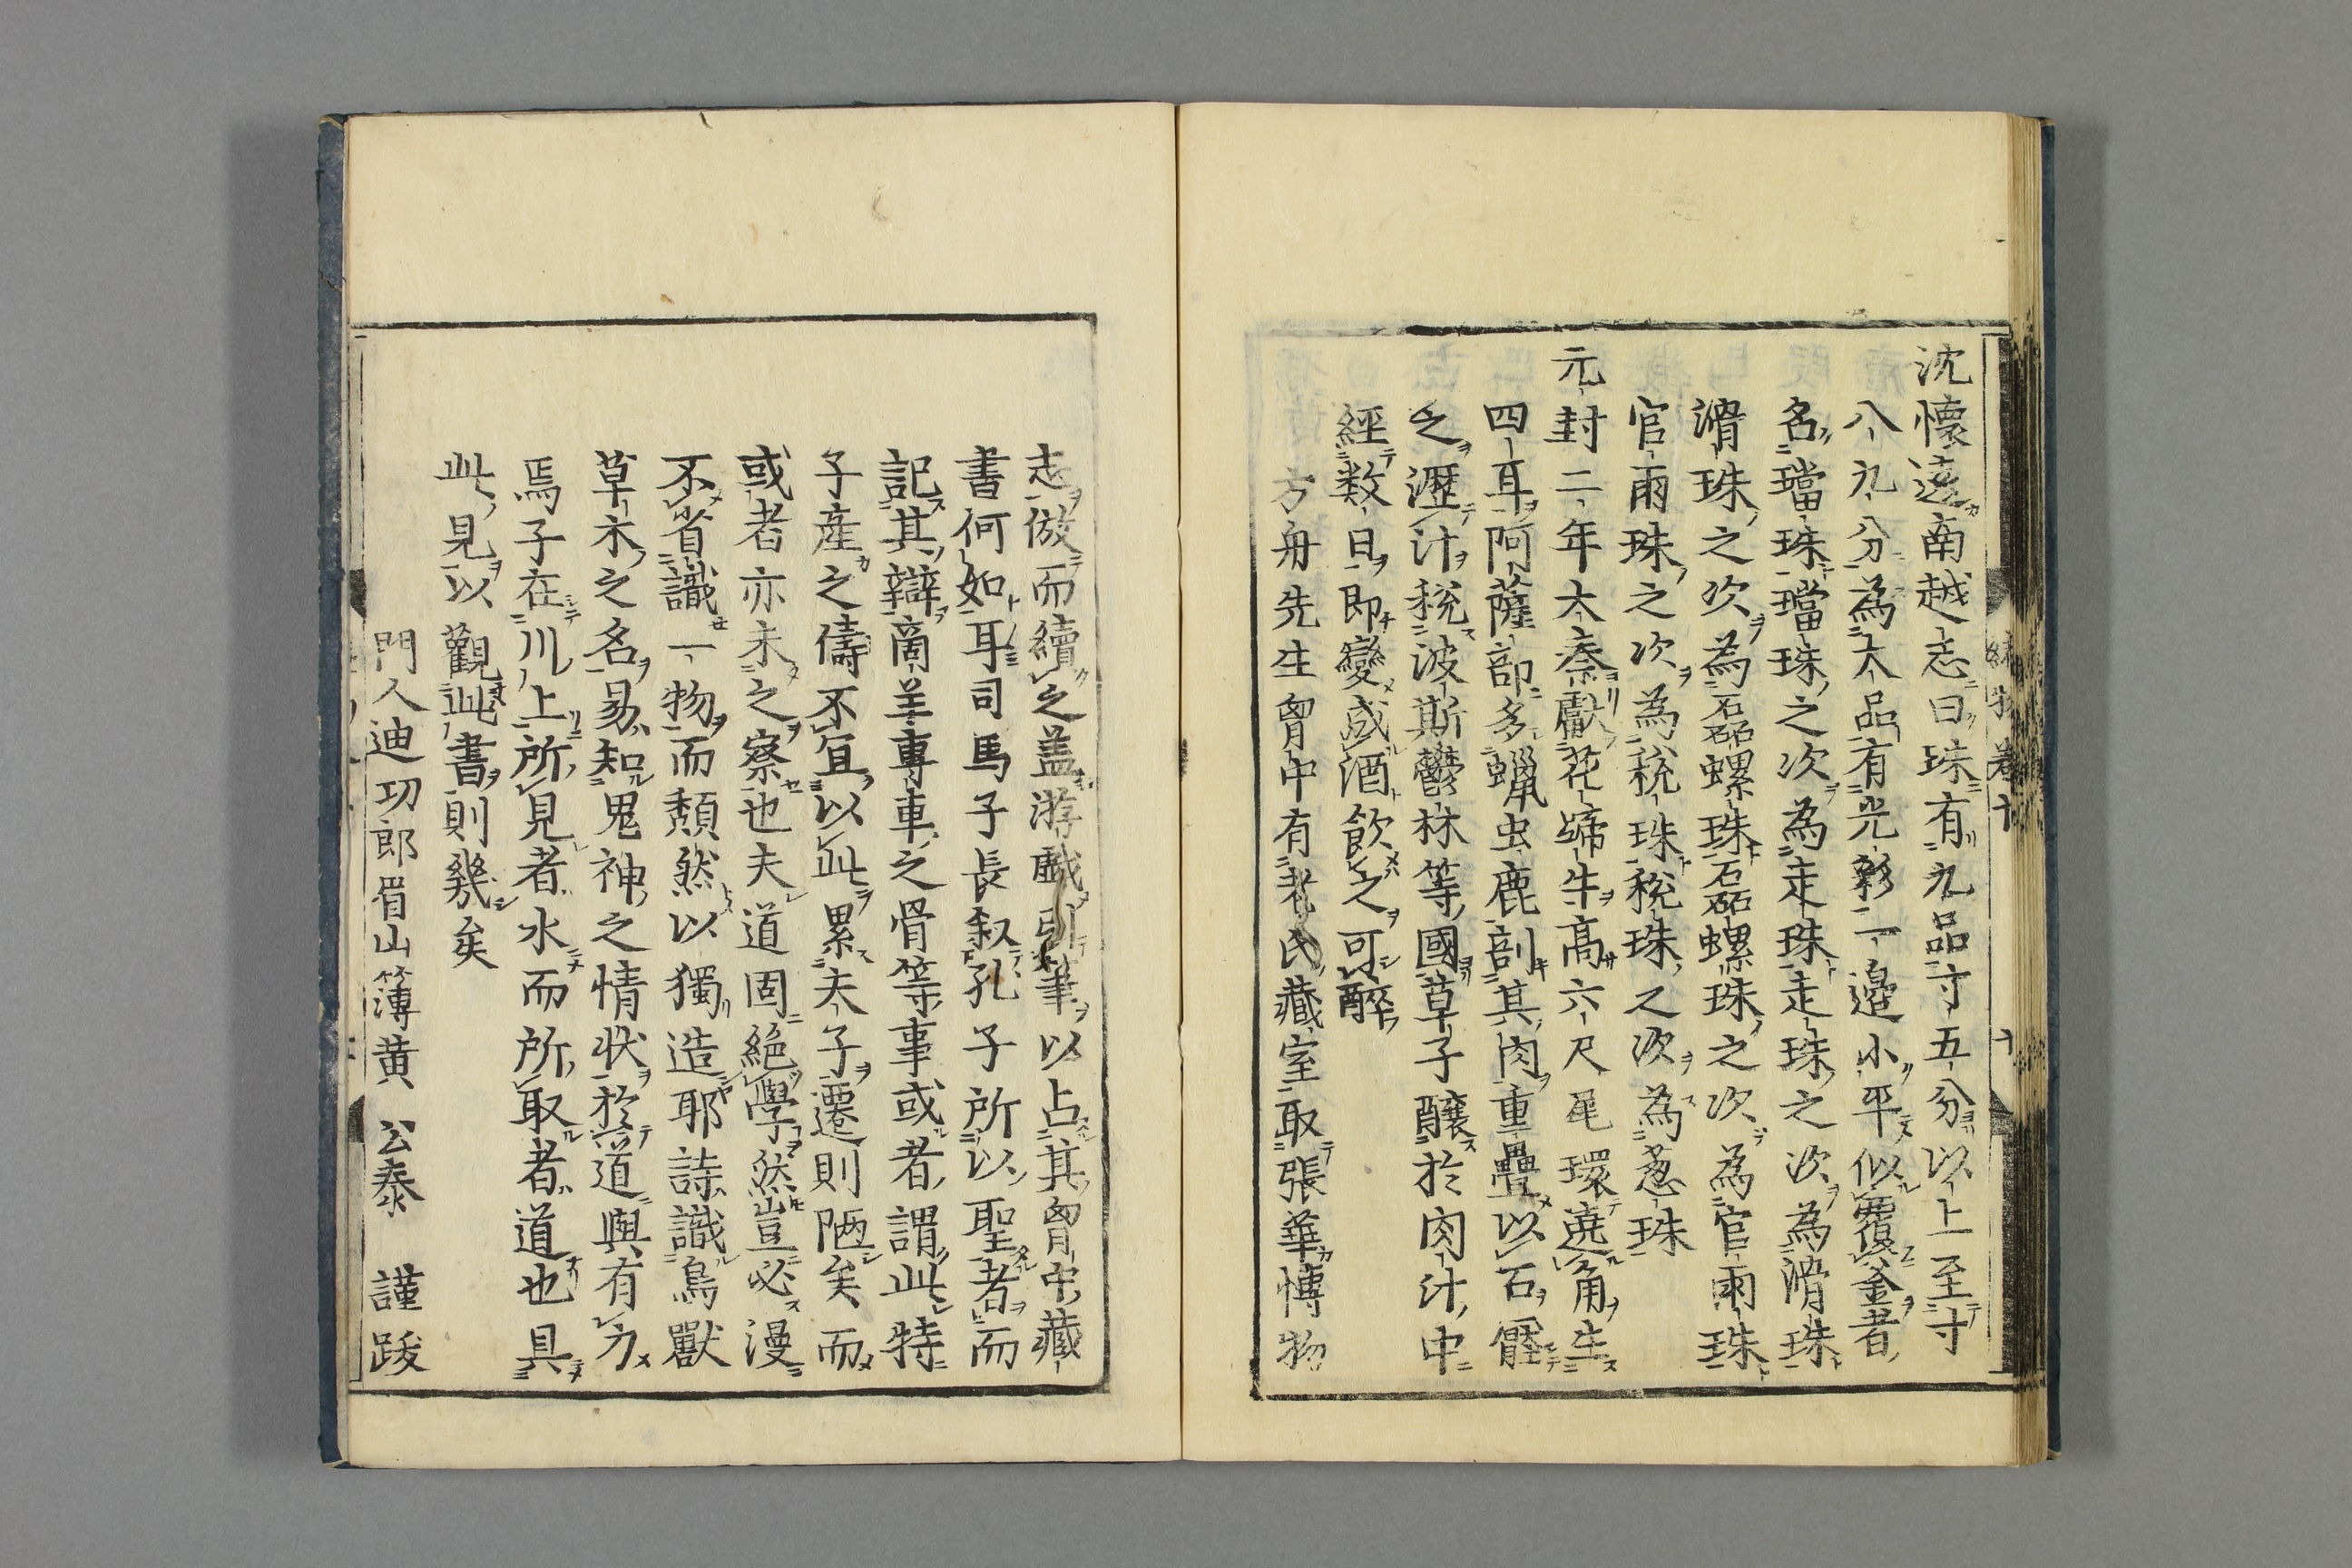 沈懷遠南越志曰珠有九品寸五分以上至寸
八九分為大品有光彩一邊小平似覆釜者
名璫珠璫珠之次為走珠走珠之次為滑珠
滑珠之次為磊螺珠磊螺珠之次為官雨珠
官雨珠之次為稅珠稅珠之次為葱珠
元封二年大秦獻花蹄牛高六尺尾環遶角生
四耳阿薩部多蠟虫鹿剖其肉重疊以石
之瀝汁稅波斯鬱林等國草子釀於肉汁中
經数日即變成酒飲之可醉
方舟先生胷中有老氏藏室取張華博物
志倣而續之盖游戲引筆以占其胷中藏
書何如耳司馬子長叙孔子所以聖者而
記其辯啇羊專車之骨等事或者謂此特
子產之儔不宜以此累夫子遷則陋矣而
或者亦未之察也夫道固絕學然豈必漫
不省識一物而頹然以獨造耶詩識鳥獸
草木之名易知鬼神之情狀於道與有力
焉子在川上所見者水而所取者道也具
此見以觀此書則幾矣
門人迪功郎眉山簿黄 公泰 謹跋
續 卷十 十